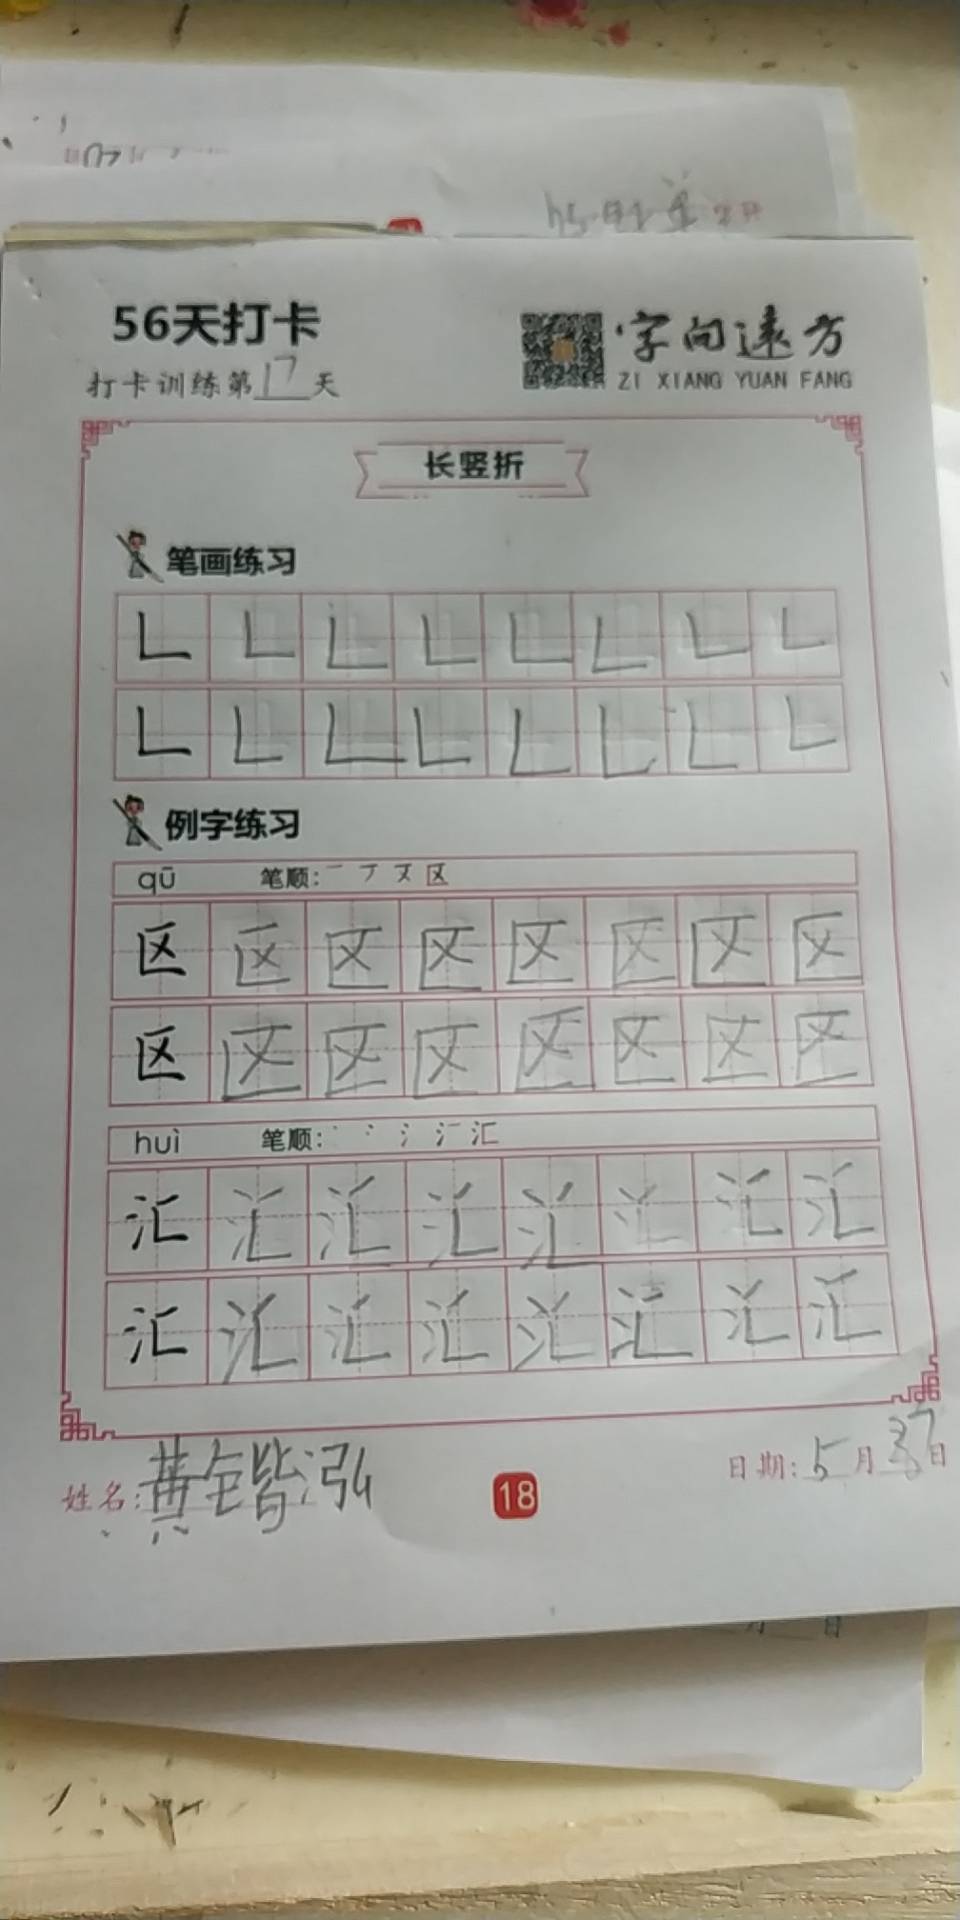 56天打卡
字向远方
打卡训练第17天
ZI XIANG YUAN FANG
长竖折
笔画练习
例字练习
qū 笔顺: 区
区 区 区 区 区 区 区 区
区 区 区 区 区 区 区 区
huì 笔顺: 汇
汇 汇 汇 汇 汇 汇 汇 汇
汇 汇 汇 汇 汇 汇 汇 汇
姓名: 黄 皆泓
18
日期: 5月 日